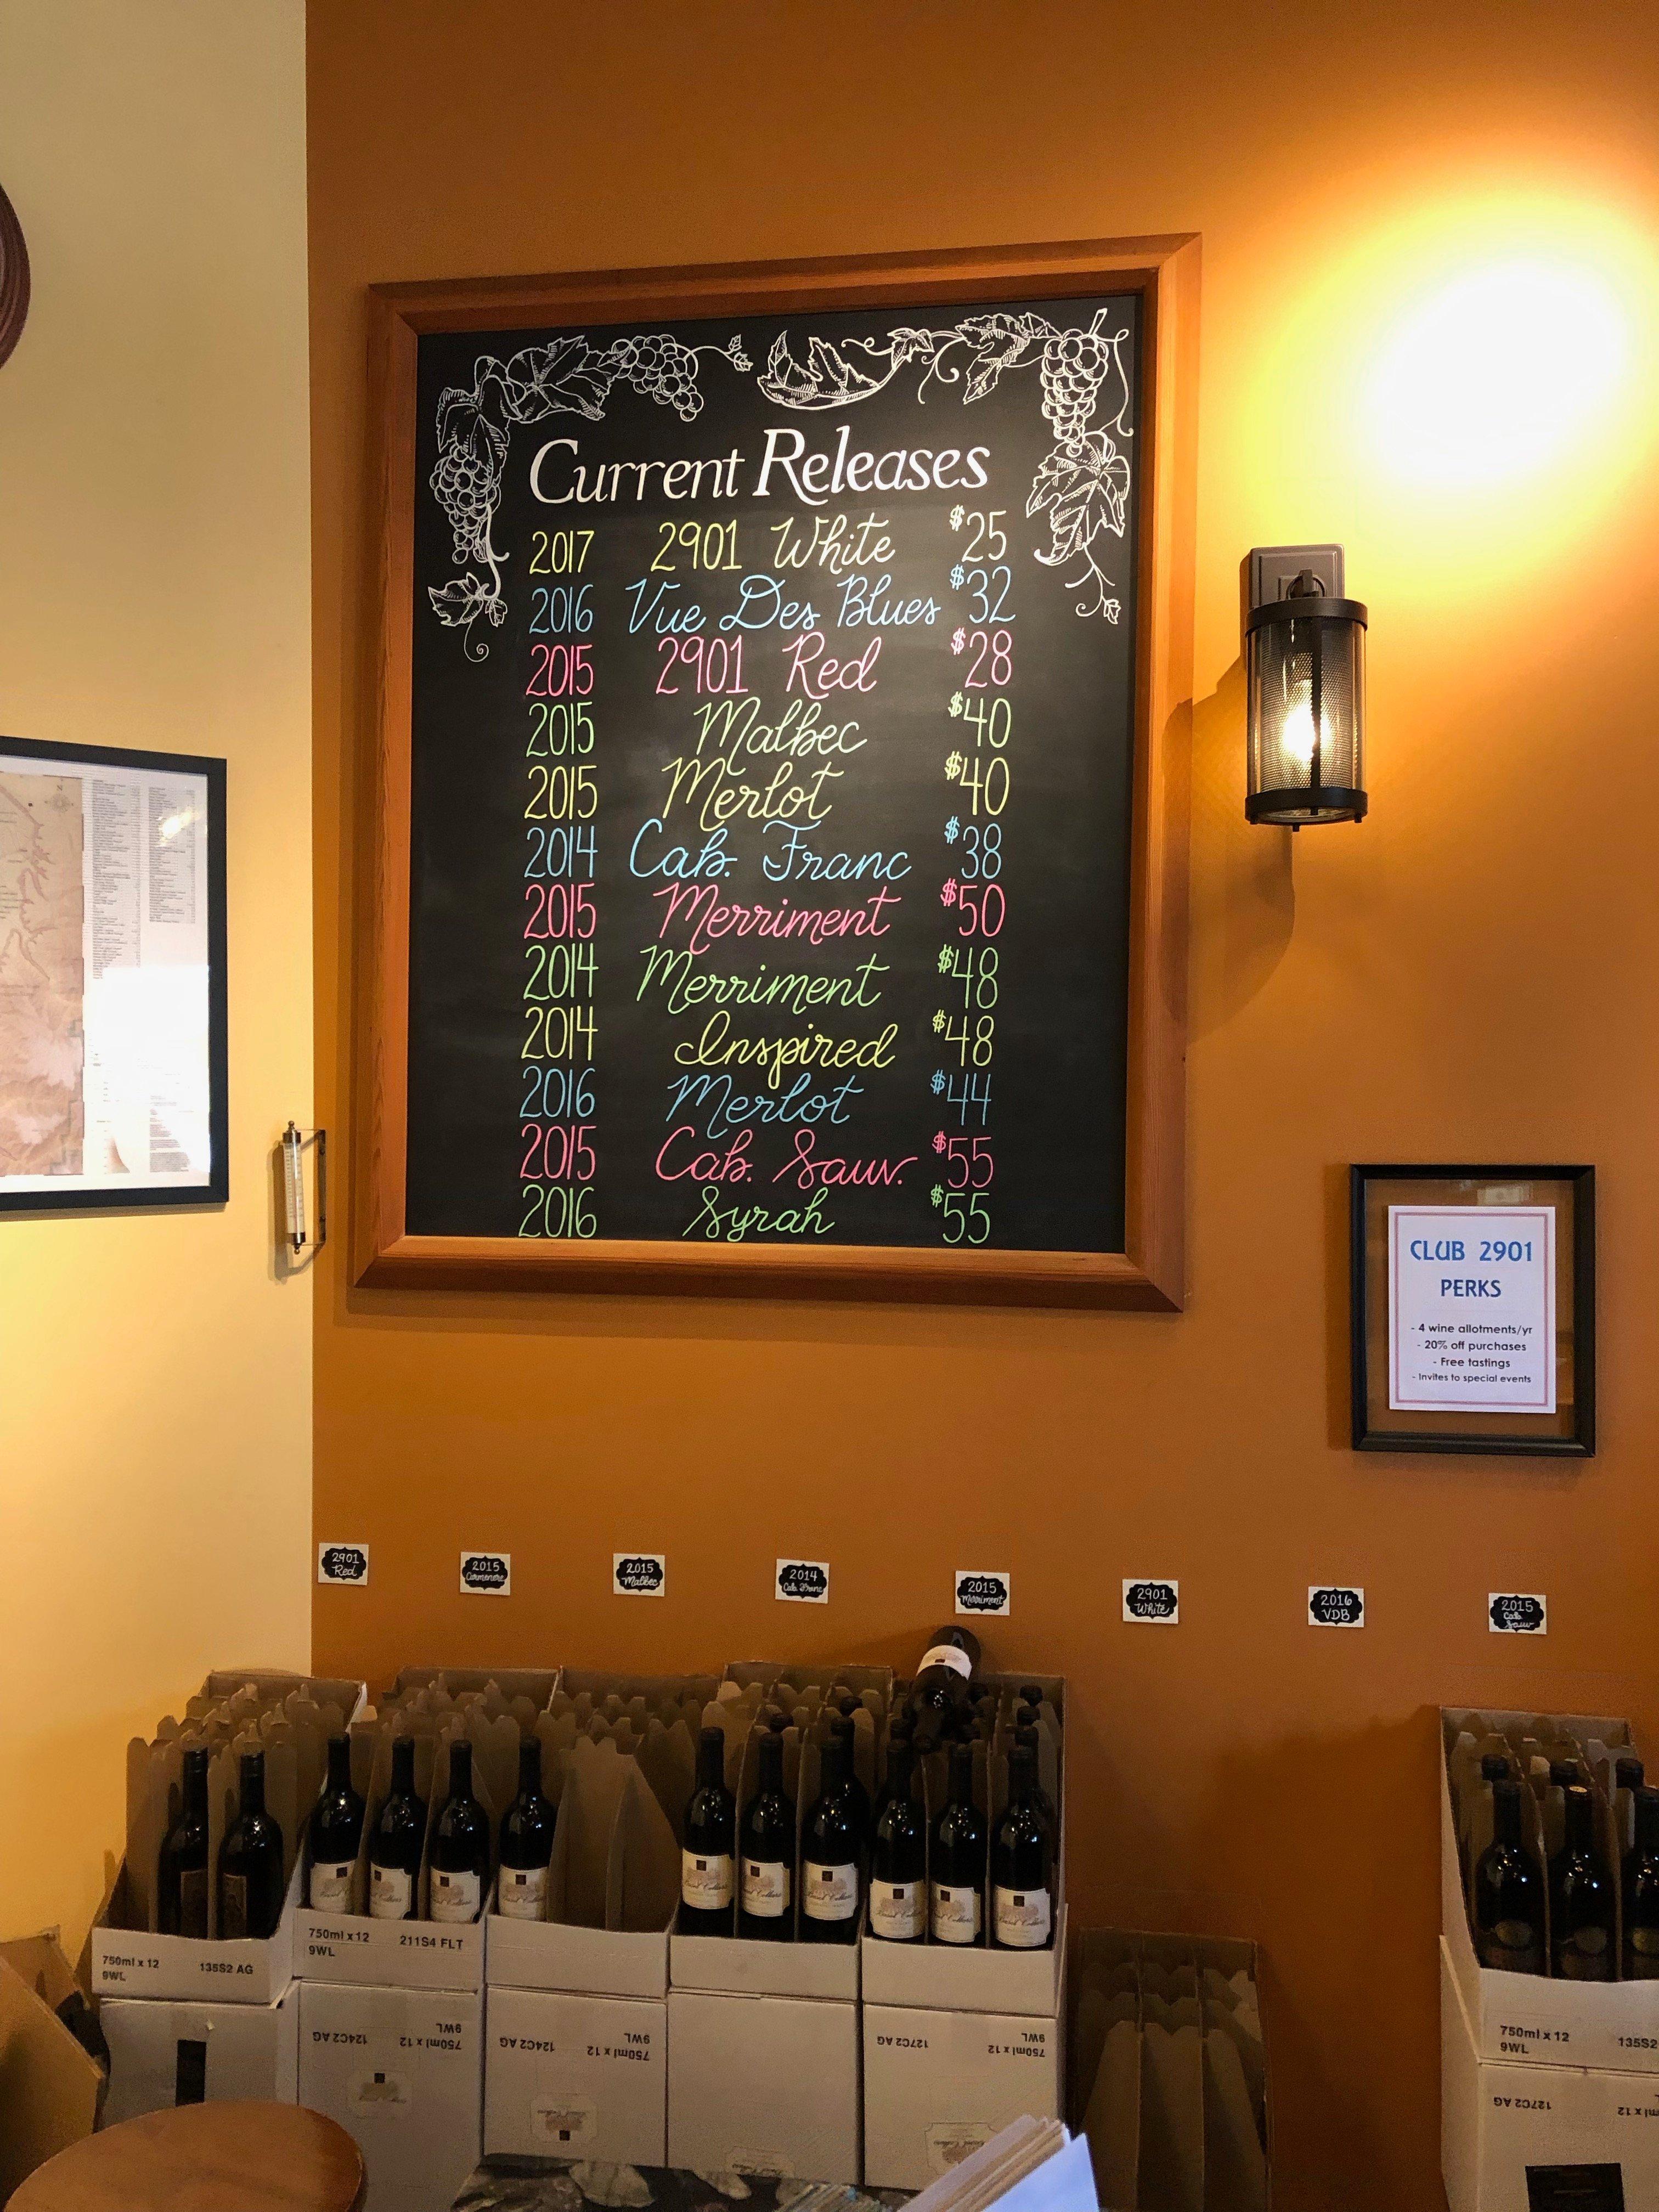 Current Releases
2017 2901 White $25
2016 Vue Des Blues $32
2015 2901 Red $28
2015 Malbec $40
2015 Merlot $40
2014 Cab. Franc $38
2015 Merriment $50
2014 Merriment $48
2014 Inspired $48
2016 Merlot $44
2015 Cab. Sauv. $55
2016 Syrah $55
CLUB 2901
PERKS
- 4 wine allotments/yr
- 20% off purchases
- Free tastings
- Invites to special events
2901
Red
2015
Carmenere
2015
Malbec
2014
Cab. Franc
2015
Merriment
2901
White
2016
VDB
2015
Cab
Sauv
750ml x 12
9WL
135S2 AG
750ml x 12
9WL
211S4 FLT
750ml x 12
9WL
135S2
750ml x 12
9WL
124C2 AG
750ml x 12
9WL
124C2 AG
750ml x 12
9WL
127C2 AG
127C2 AG